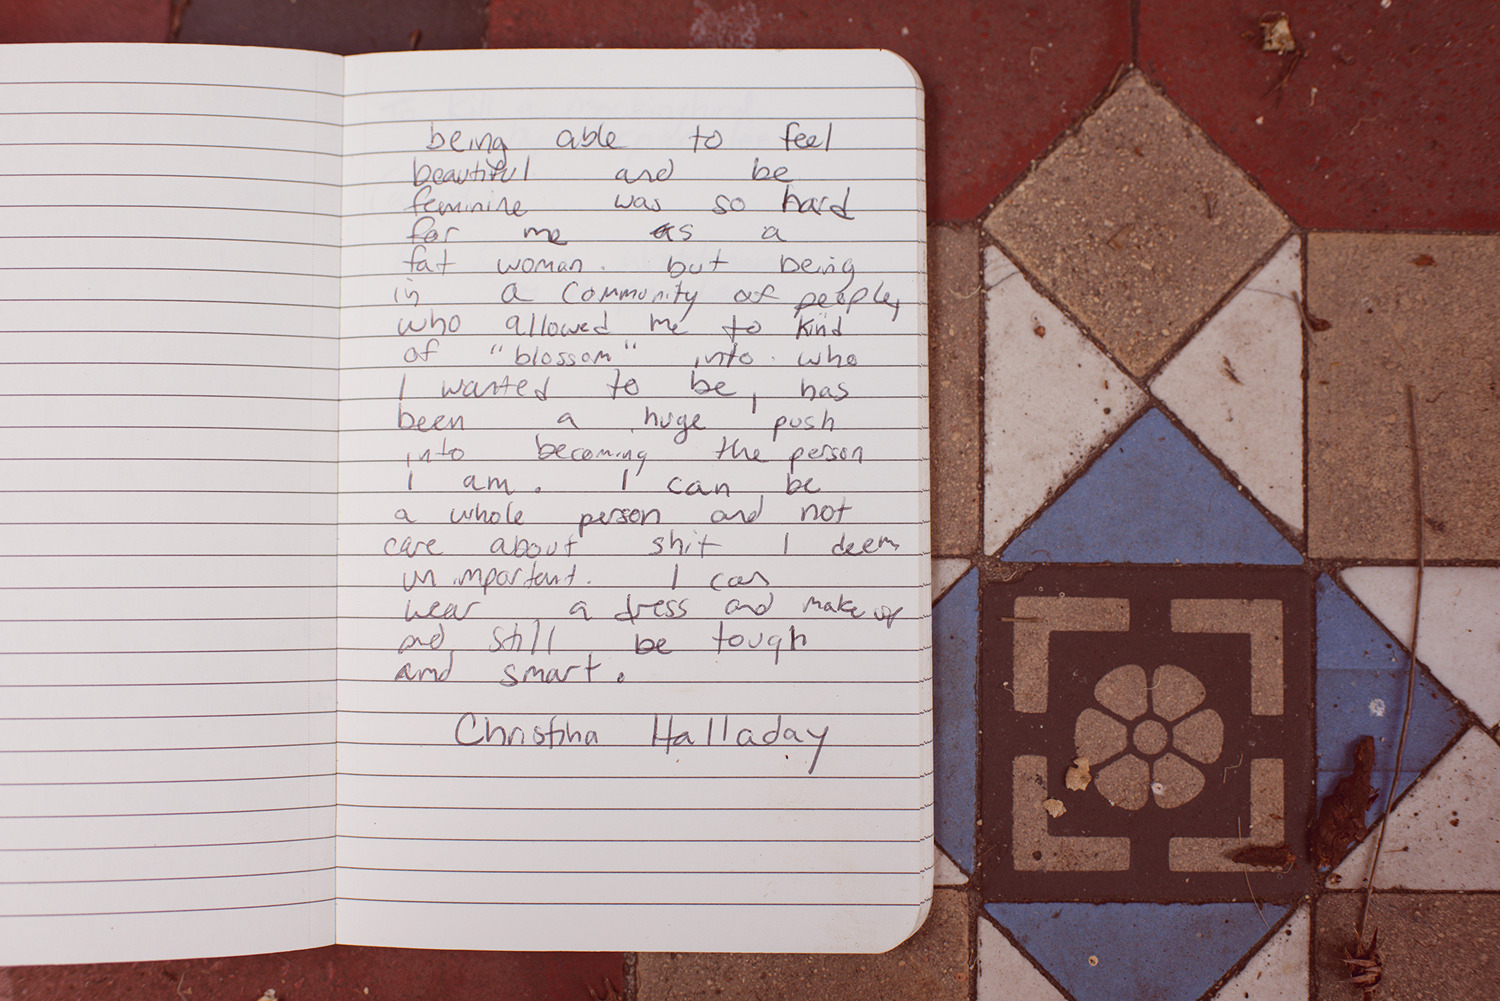 being able to feel
beautiful and be
feminine was so hard
for me as a
fat woman. but being
in a community of people,
who allowed me to kind
of "blossom" into who
I wanted to be, has
been a huge push
into becoming the person
I am. I can be
a whole person and not
care about shit I deem
unimportant. I can
wear a dress and make up
and still be tough
and smart.
Christina Halladay